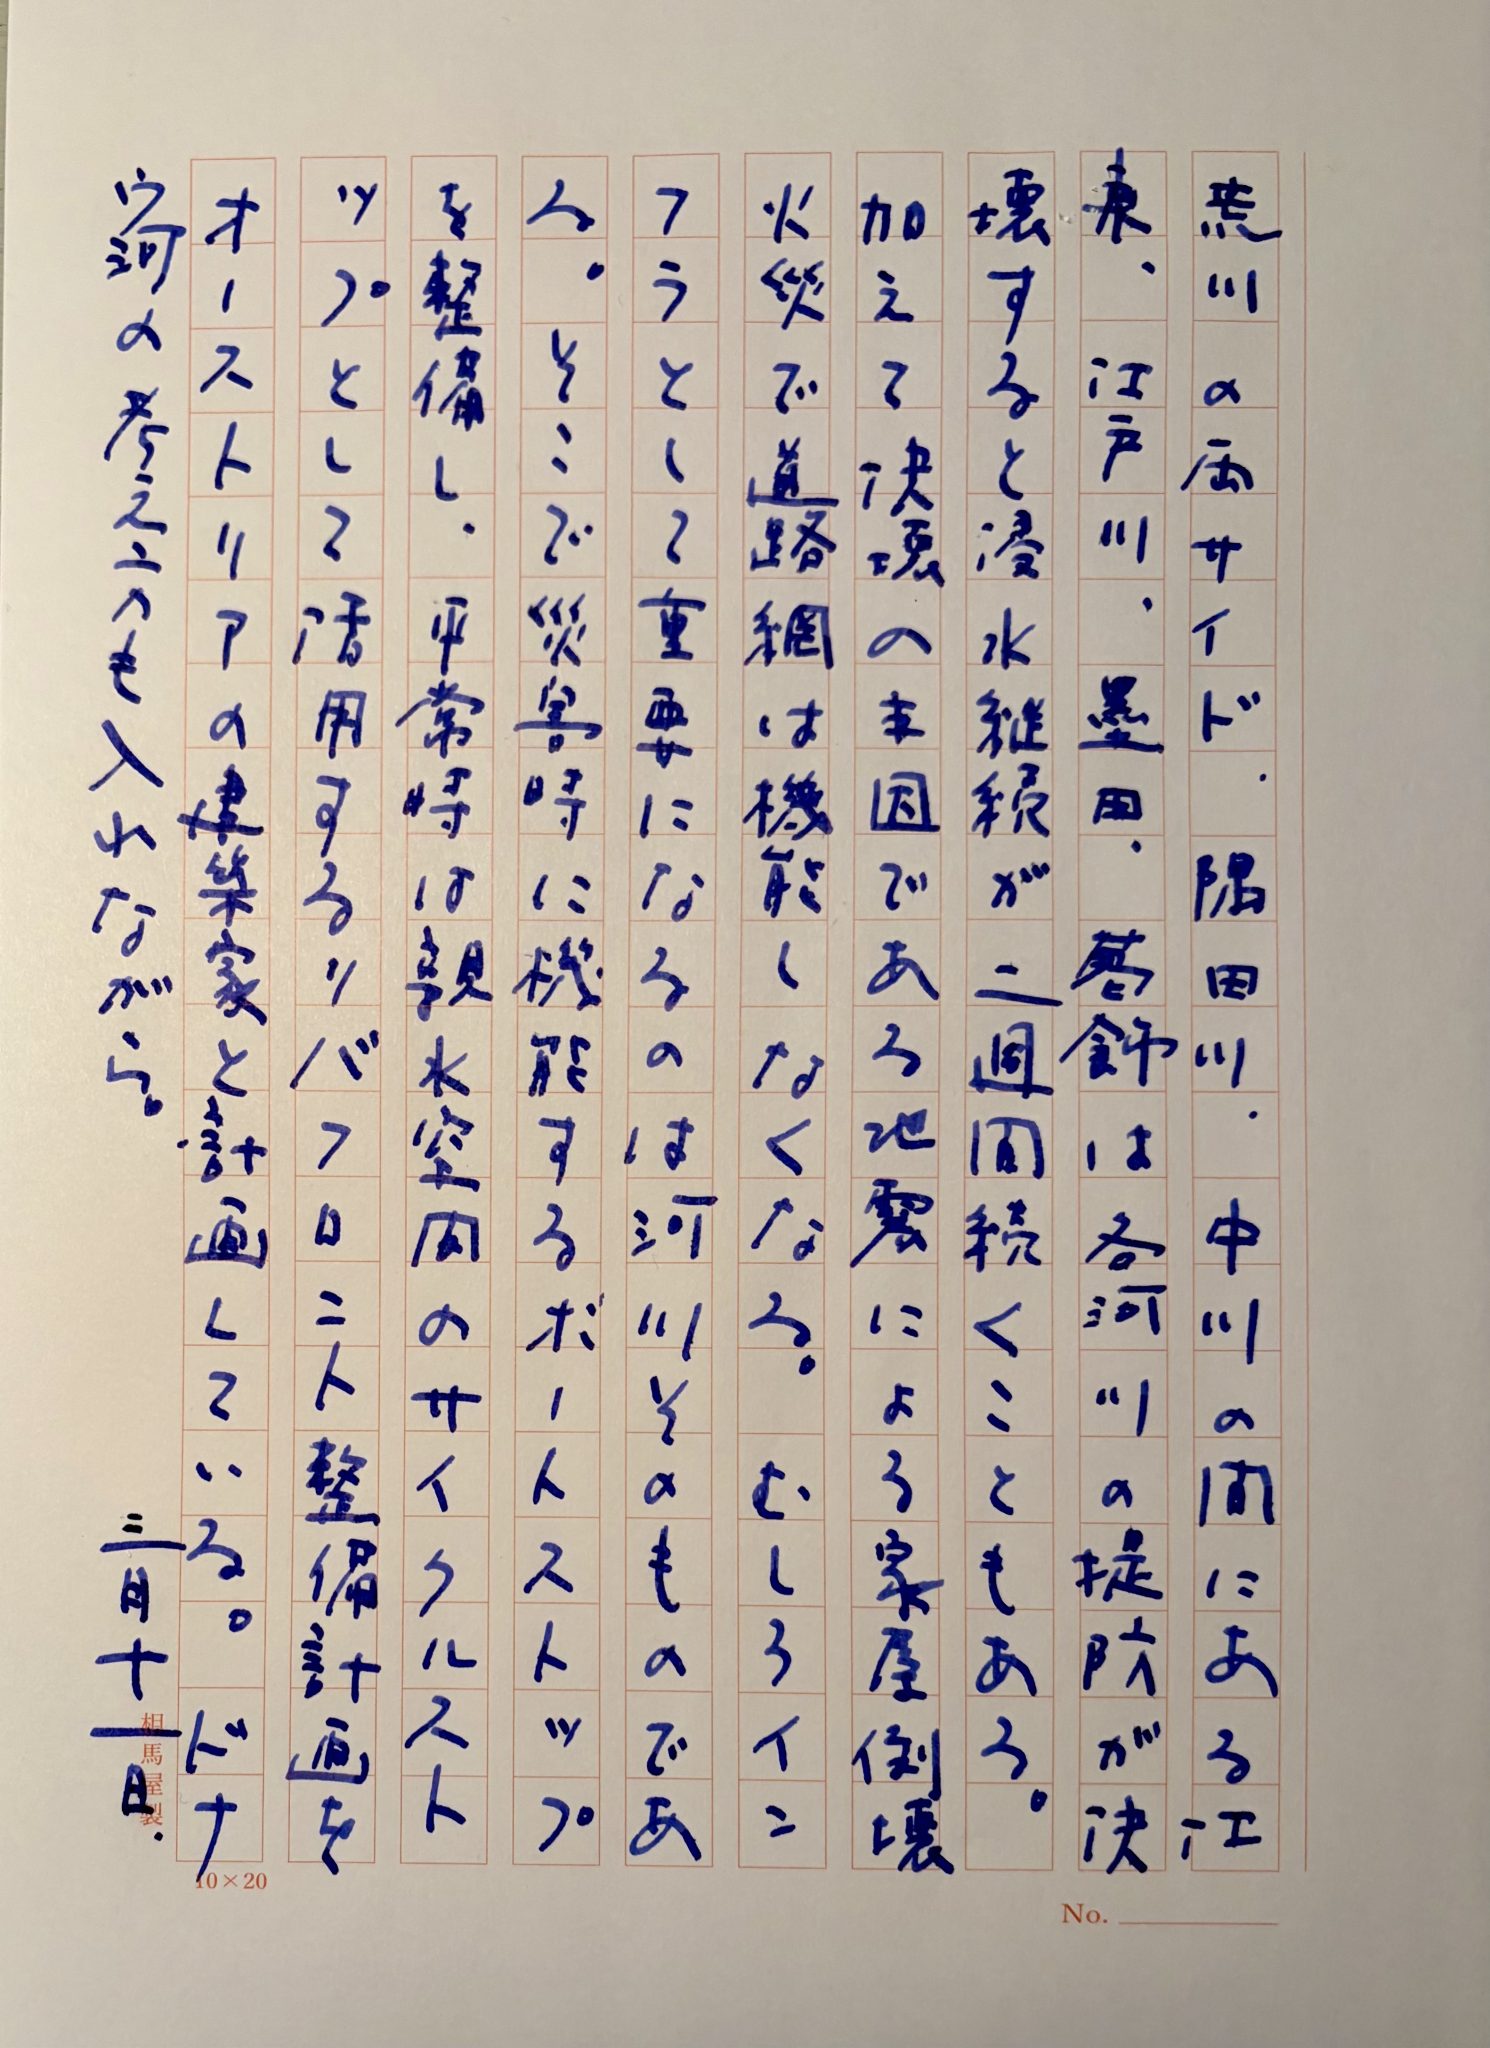 荒川の両サイド.隅田川.中川の間にある江
東、江戸川、墨田.葛飾は各河川の堤防が決
壊すると浸水継続が二週間続くこともある。
加えて決壊の主因である地震による家屋倒壊
火災で道路網は機能しなくなる。むしろイン
フラとして重要になるのは河川そのものであ
る。そこで災害時に機能するボートストップ
を整備し、平常時は親水空間のサイクルスト
ップとして活用するリバーフロント整備計画を
オーストリアの建築家と計画している。ドナ
ウ河の考え方も入れながら。
三月十一日.
相馬屋製
10×20
No.